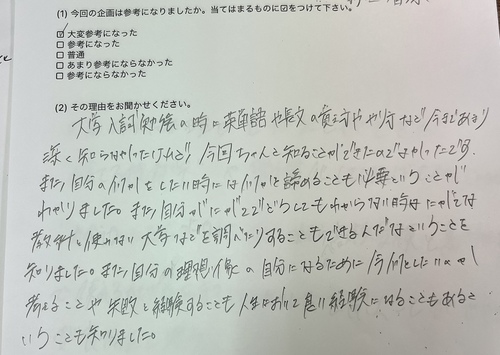 (1) 今回の企画は参考になりましたか。当てはまるものに☑をつけて下さい。
☑ 大変参考になった
□ 参考になった
□ 普通
□ あまり参考にならなかった
□ 参考にならなかった
(2) その理由をお聞かせください。
大学入試勉強の時に英単語や長文の覚え方ややり方など今まであまり
深く知らなかったけれど、今回ちゃんと知ることができたのでよかったです。
また、自分の何かをしたい時には何かを諦めることも必要ということが
わかりました。また自分がにがてでどうしてもわからない時はにがてな
教科を使わない大学などを調べたりすることもできるんだなということを
知りました。また、自分の理想像の自分になるために今何をしたいか
考えることや失敗を経験することも人生において良い経験になることもあると
いうことも知りました。